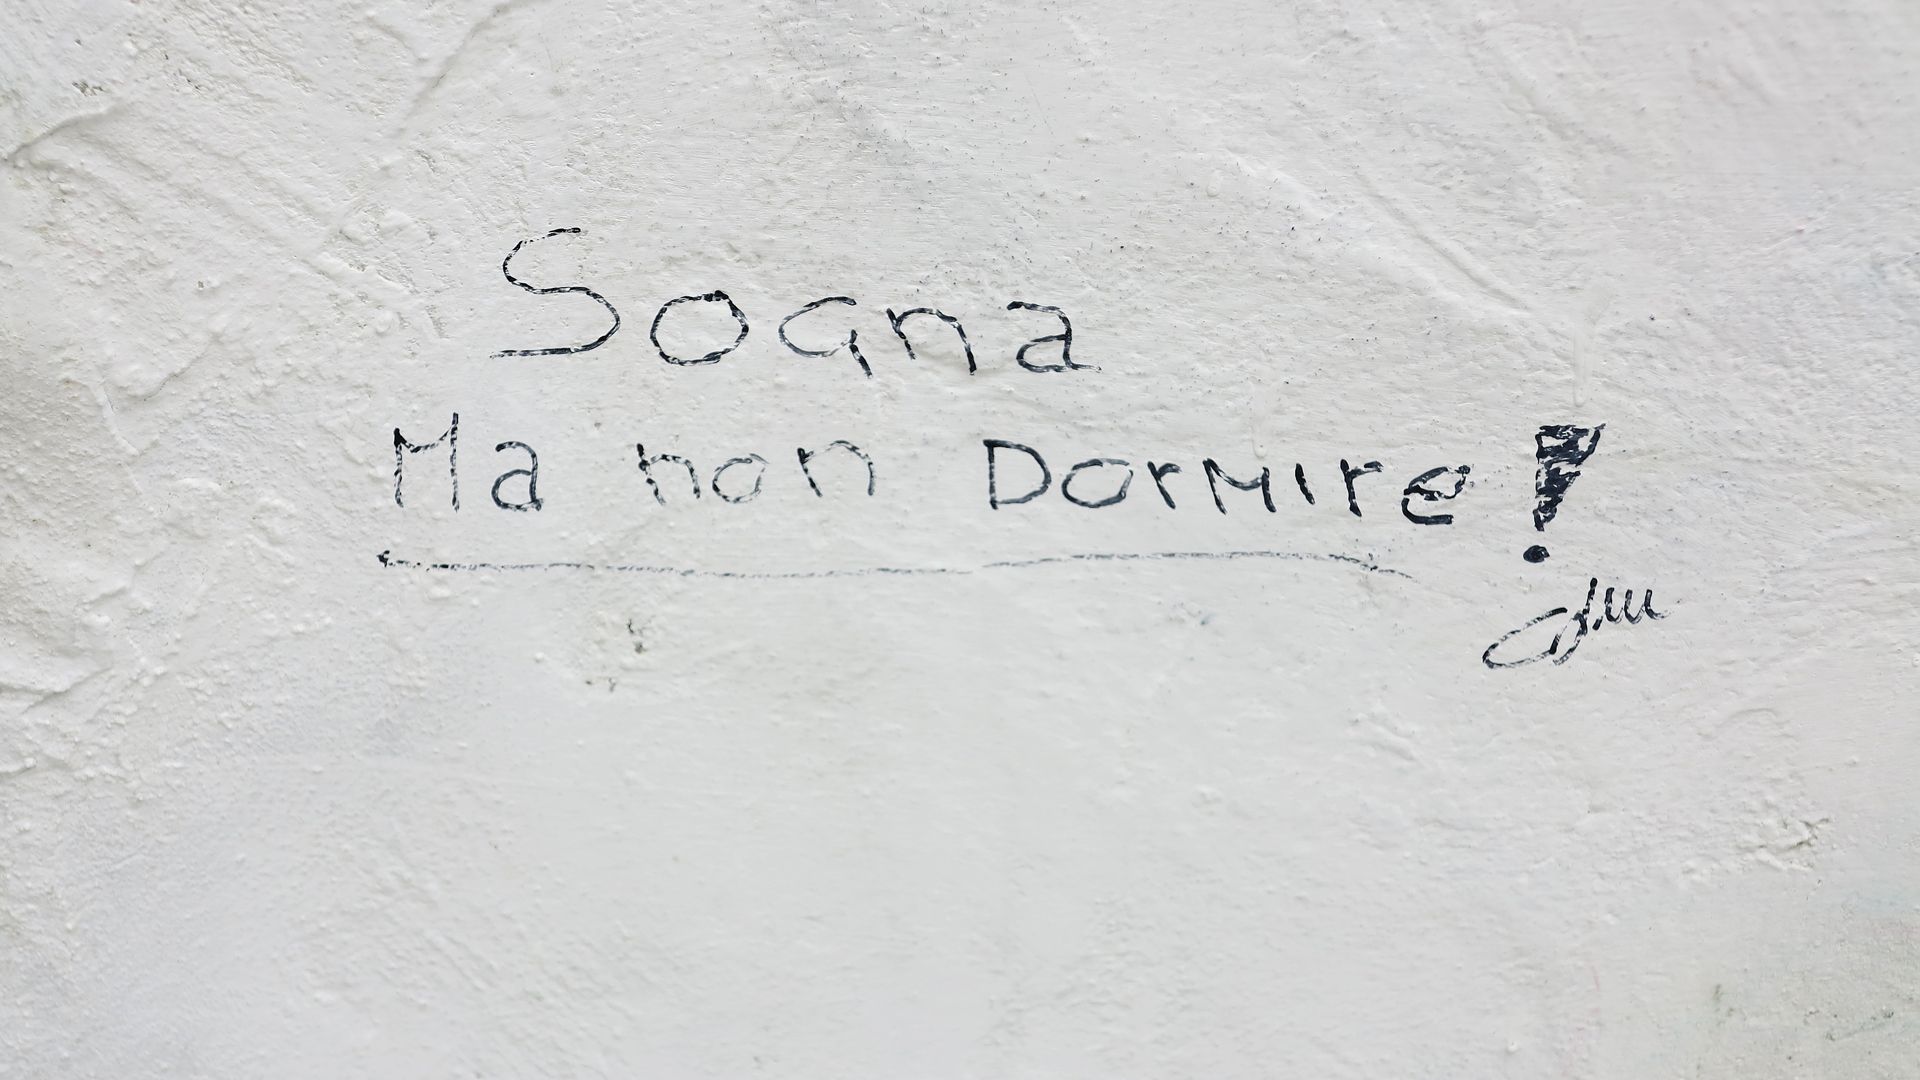 Sogna
Ma non Dormire!